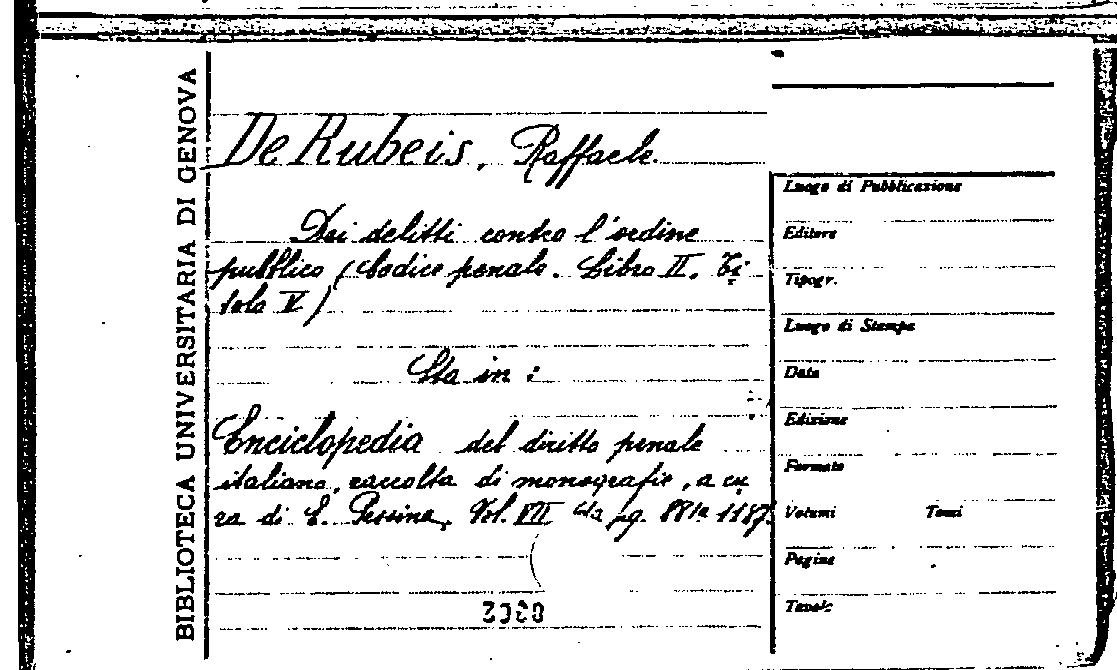 BIBLIOTECA UNIVERSITARIA DI GENOVA
De Rubeis, Raffaele.
Dei delitti contro l'ordine
pubblico (Codice penale. Libro II. Ti
tolo V)
Sta in:
Enciclopedia del diritto penale
italiano, raccolta di monografie, a cu
ra di E. Pessina, Vol. VII da pg. 881 a 1187.
Luogo di Pubblicazione
Editore
Tipogr.
Luogo di Stampa
Data
Edizione
Formato
Volumi Tomi
Pagine
Tavole